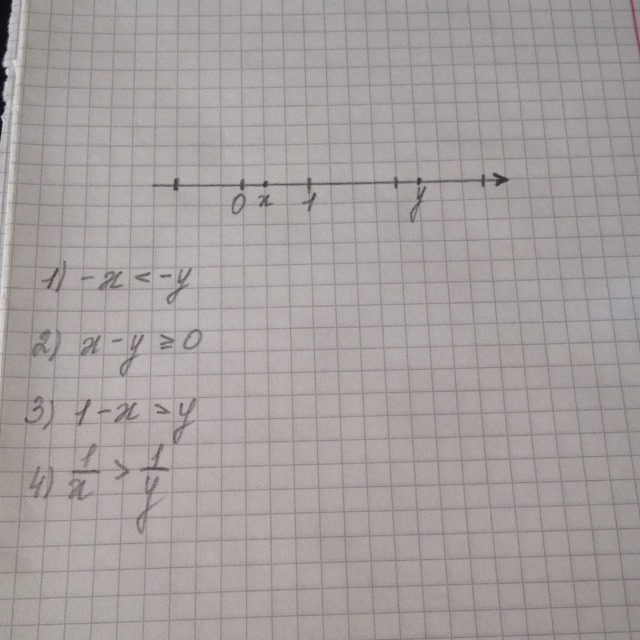 0 x 1 y
1) -x < -y
2) x - y ≥ 0
3) 1 - x > y
4) 1/x > 1/y